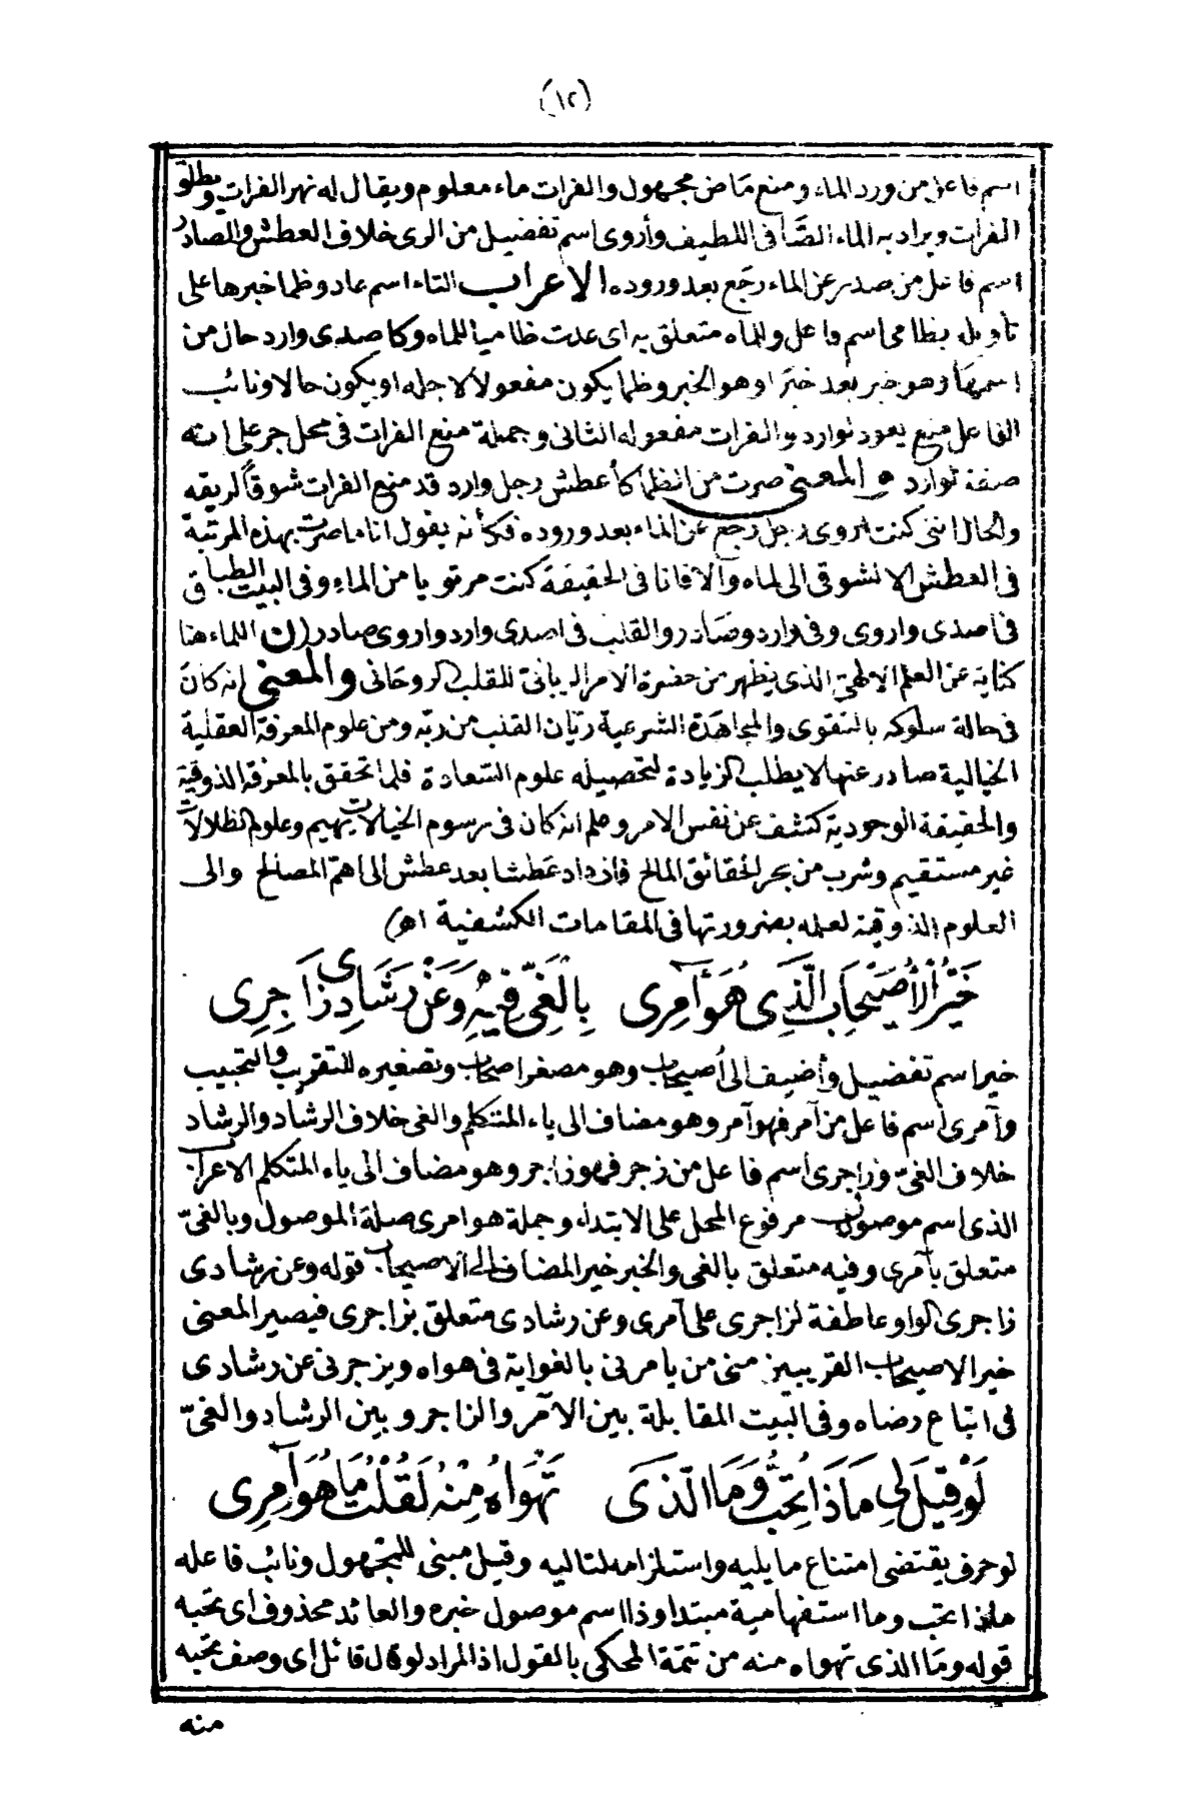 (١٢)
اسم فاعل من ورد الماء ومنع ماض مجهول والفرات ماء معلوم ويقال له نهر الفرات ويطلق
الفرات ويراد به الماء الصافى اللطيف وأروى اسم تفضيل من الرى خلاف العطش والصادر
اسم فاعل من صدر عن الماء رجع بعد وروده الاعراب التاء اسم عاد وظما خبرها على
تأويله بظامى اسم فاعل والماء متعلق به اى عدت ظاميا للماء وكاصدى وارد حال من
اسمها وهو خبر بعد خبر او هو الخبر وظما يكون مفعولا لاجله او يكون حالا ونائب
الفاعل منع يعود لوارد والفرات مفعوله الثانى وجملة منع الفرات فى محل جر على انه
صفة لوارد والمعنى صرت من الظما كأعطش رجل وارد قد منع الفرات شوقا لريقه
والحال اننى كنت اروى رجل رجع عن الماء بعد وروده فكأنه يقول انا ما صرت بهذه المرتبة
فى العطش الا لشوقى الى لماه والا فانا فى الحقيقة كنت مرتويا من الماء وفى البيت الطباق
فى اصدى واروى وفى وارد وصادر والقلب فى اصدى وارد واروى صادر (ن) اللماء هنا
كناية عن العلم الالهى الذى يظهر من حضرة الامر الربانى للقلب الروحانى والمعنى انه كان
فى حالة سلوكه بالتقوى والمجاهدة الشرعية ريان القلب من ربه ومن علوم المعرفة العقلية
الخيالية صادر عنها لا يطلب الزيادة لتحصيله علوم السعادة فلما تحقق بالمعرفة الذوقية
والحقيقة الوجودية كشف عن نفس الامر وعلم انه كان فى رسوم الخيالات يهيم وعلوم الظلالات
غير مستقيم وشرب من بحر الحقائق المالح فازداد عطشا بعد عطش الى اهم المصالح والى
العلوم الذوقية لعلمه بضرورتها فى المقامات الكشفية اه)
خَيْرُ الْأُصَيْحَابِ الَّذِى هُوَ آمِرِى بِالْغَىِّ فِيْهِ وَعَنْ رَشَادِى زَاجِرِى
خير اسم تفضيل وأضيف الى أصيحاب وهو مصغر اصحاب وتصغيره للتقريب والتحبيب
وآمرى اسم فاعل من آمر فهو آمر وهو مضاف الى ياء المتكلم والغى خلاف الرشاد والرشاد
خلاف الغىّ وزاجرى اسم فاعل من زجر فهو زاجر وهو مضاف الى ياء المتكلم الاعراب
الذى اسم موصول مرفوع المحل على الابتداء وجملة هو امرى صلة الموصول وبالغىّ
متعلق بآمرى وفيه متعلق بالغى والخبر خير المضاف الى الاصيحاب قوله وعن رشادى
زاجرى الواو عاطفة لزاجرى على آمرى وعن رشادى متعلق بزاجرى فيصير المعنى
خير الاصيحاب القريبين منى من يأمرنى بالغواية فى هواه ويزجرنى عن رشادى
فى اتباع رضاه وفى البيت المقابلة بين الآمر والزاجر وبين الرشاد والغىّ
لَوْ قِيْلَ لِى مَاذَا تُحِبُّ وَمَا الَّذِى تَهْوَاهُ مِنْهُ لَقُلْتُ مَا هُوَ آمِرِى
لو حرف يقتضى امتناع ما يليه واستلزامه لتاليه وقيل مبنى للمجهول ونائب فاعله
ماذا تحب وما استفهامية مبتدا وذا اسم موصول خبره والعائد محذوف اى تحبه
قوله وما الذى تهواه منه من تتمة المحكى بالقول اذ المراد لو قال قائل اى وصف تحبه
منه